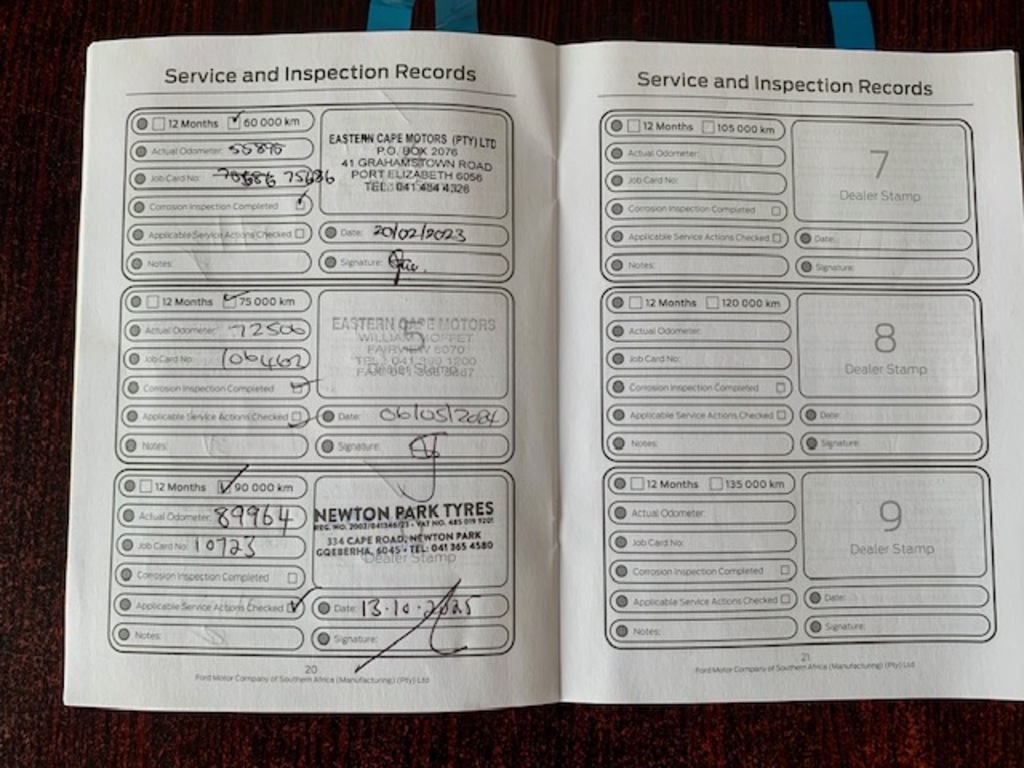 Service and Inspection Records
12 Months 60 000 km
Actual Odometer: 55895
Job Card No: 75686
Corrosion Inspection Completed
Applicable Service Actions Checked
Notes:
EASTERN CAPE MOTORS (PTY) LTD
P.O. BOX 2076
41 GRAHAMSTOWN ROAD
PORT ELIZABETH 6056
TEL: 041 484 4326
Date: 20/02/2023
Signature:
12 Months 75 000 km
Actual Odometer: 72506
Job Card No: 106462
Corrosion Inspection Completed
Applicable Service Actions Checked
Notes:
5
EASTERN CAPE MOTORS
WILLIAM MOFFET
FAIRVIEW 6070
Dealer Stamp
Date: 06/05/2024
Signature:
12 Months 90 000 km
Actual Odometer: 89964
Job Card No: 10723
Corrosion Inspection Completed
Applicable Service Actions Checked
Notes:
NEWTON PARK TYRES
334 CAPE ROAD, NEWTON PARK
GQEBERHA, 6045 • TEL: 041 365 4580
Dealer Stamp
Date: 13.10.2025
Signature:
20
Ford Motor Company of Southern Africa (Manufacturing) (Pty) Ltd
Service and Inspection Records
12 Months 105 000 km
Actual Odometer:
Job Card No:
Corrosion Inspection Completed
Applicable Service Actions Checked
Notes:
7
Dealer Stamp
Date:
Signature:
12 Months 120 000 km
Actual Odometer:
Job Card No:
Corrosion Inspection Completed
Applicable Service Actions Checked
Notes:
8
Dealer Stamp
Date:
Signature:
12 Months 135 000 km
Actual Odometer:
Job Card No:
Corrosion Inspection Completed
Applicable Service Actions Checked
Notes:
9
Dealer Stamp
Date:
Signature:
21
Ford Motor Company of Southern Africa (Manufacturing) (Pty) Ltd